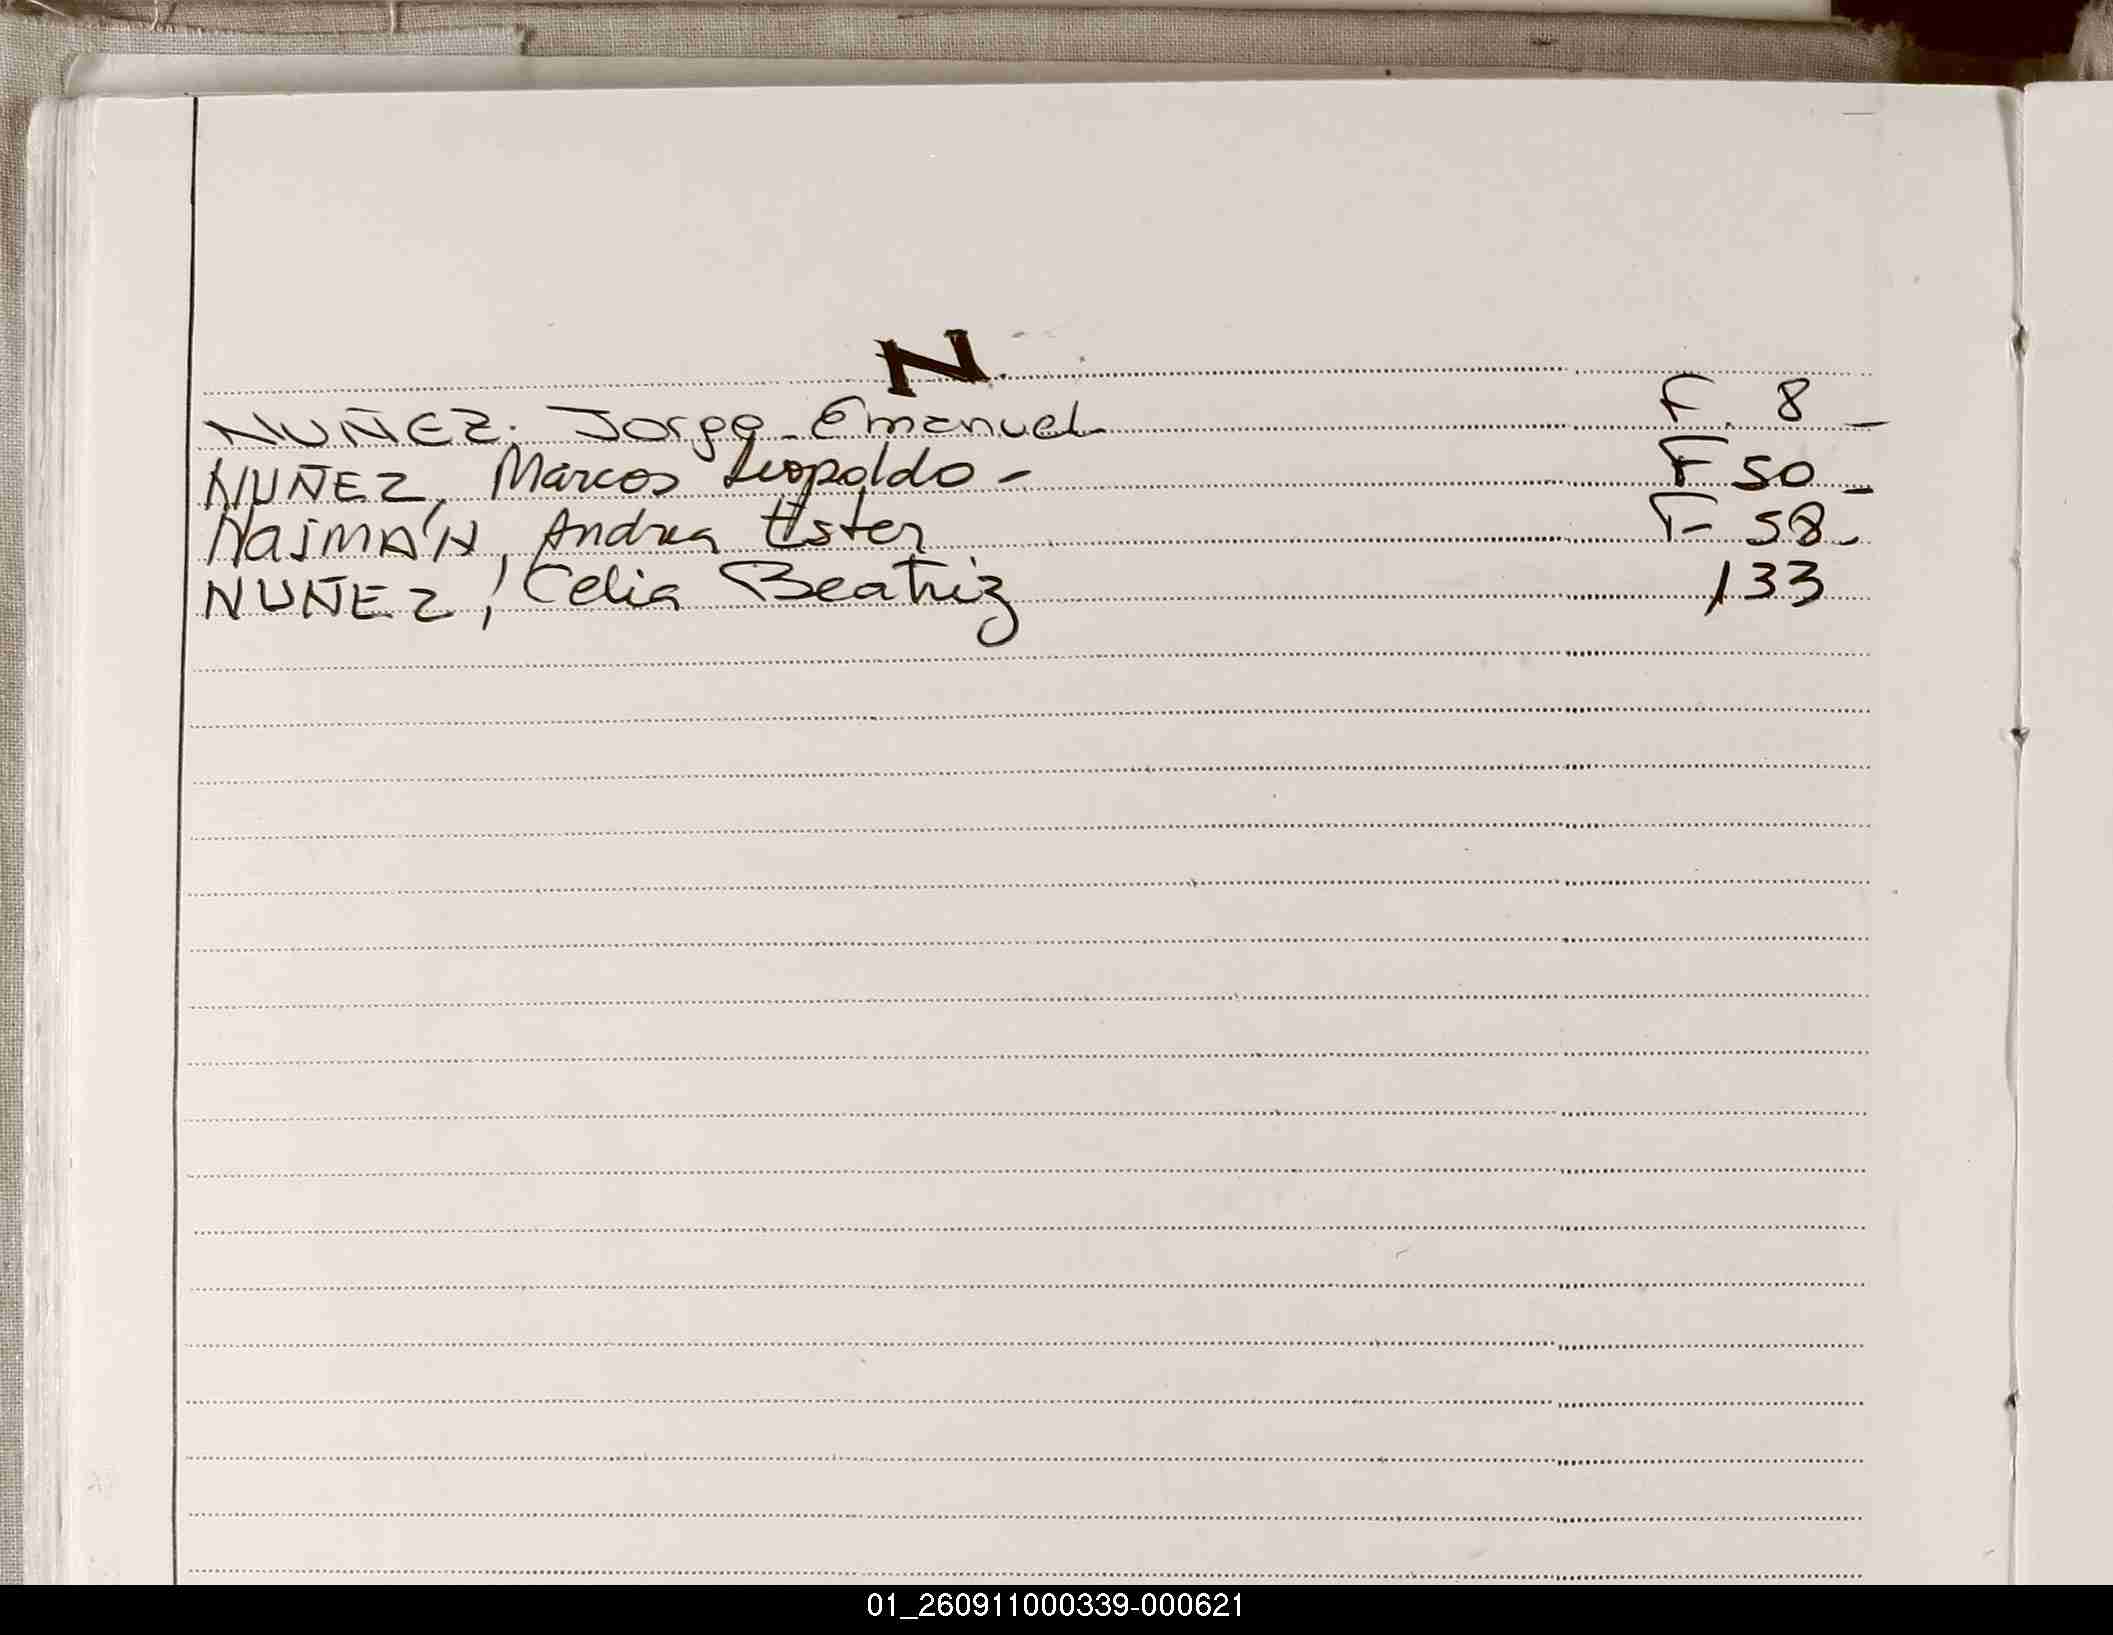 N
NUÑEZ. Jorge Emanuel F. 8 _
NUÑEZ, Marcos Leopoldo - F 50 _
NaimÁN, Andrea Ester F- 58-
NUÑEZ, Celia Beatriz 133
01_260911000339-000621